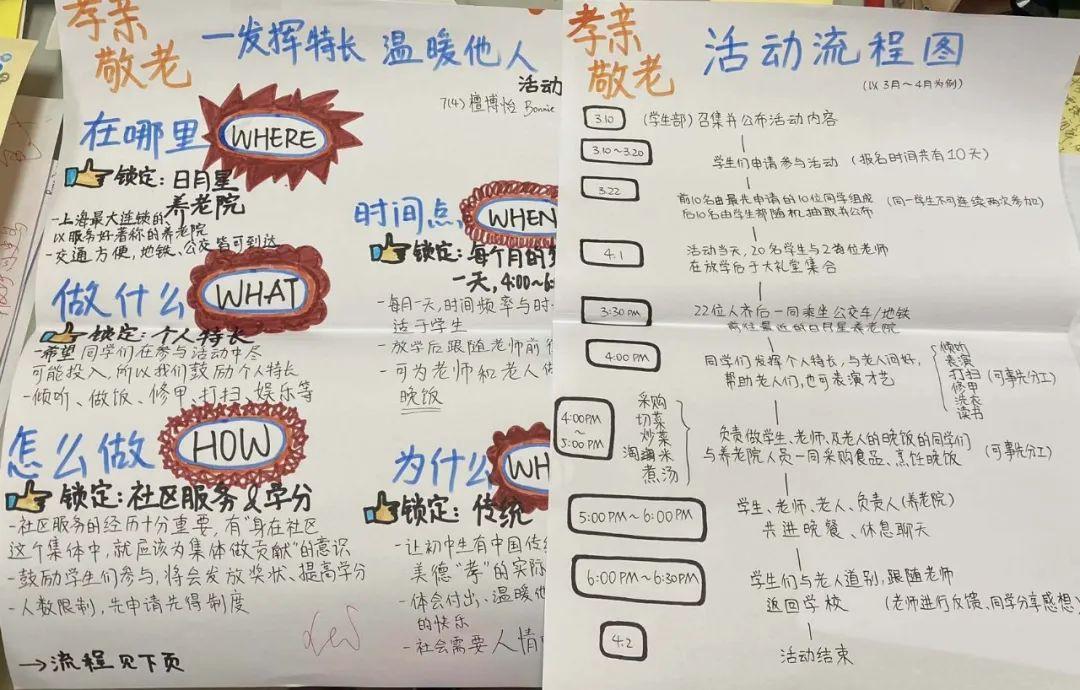 孝亲
敬老
一发挥特长 温暖他人
活动
7(4) 檀博怡 Bonnie
在哪里 WHERE
锁定:日月星
养老院
-上海最大连锁的
以服务好著称的养老院
-交通方便,地铁、公交皆可到达
做什么 WHAT
锁定:个人特长
-希望同学们在参与活动中尽
可能投入,所以我们鼓励个人特长
-倾听、做饭、修甲、打扫、娱乐等
怎么做 HOW
锁定:社区服务&学分
-社区服务的经历十分重要,有“身在社区
这个集体中,就应该为集体做贡献”的意识
-鼓励学生们参与,将会发放奖状、提高学分
-人数限制,先申请先得制度
→流程见下页
时间点 WHEN
锁定:每个月的
一天,4:00~6:
-每月一天,时间频率与时
适于学生
-放学后跟随老师前往
-可为老师和老人做
晚饭
为什么 WH
锁定:传统
-让初中生有中国传统
美德“孝”的实际
-体会付出、温暖他
的快乐
-社会需要人情
孝亲
敬老
活动流程图
(以3月~4月为例)
3.10 (学生部)召集并公布活动内容
3.10~3.20 学生们申请参与活动 (报名时间共有10天)
3.22 前10名由最先申请的10位同学组成
后10名由学生部随机抽取并公布 (同一学生不可连续两次参加)
4.1 活动当天,20名学生与2位老师
在放学后于大礼堂集合
3:30PM 22位人齐后一同乘坐公交车/地铁
前往最近的日月星养老院
4:00PM 同学们发挥个人特长,与老人问好,
帮助老人们,也可表演才艺
倾听
表演
打扫
修甲
洗衣
读书
(可事先分工)
4:00PM
~
5:00PM
采购
切菜
炒菜
淘米
煮汤
负责做学生、老师、及老人的晚饭的同学们
与养老院人员一同采购食品、烹饪晚饭 (可事先分工)
5:00PM~6:00PM 学生、老师、老人、负责人(养老院)
共进晚餐、休息聊天
6:00PM~6:30PM 学生们与老人道别,跟随老师
返回学校 (老师进行反馈、同学分享感想)
4.2 活动结束